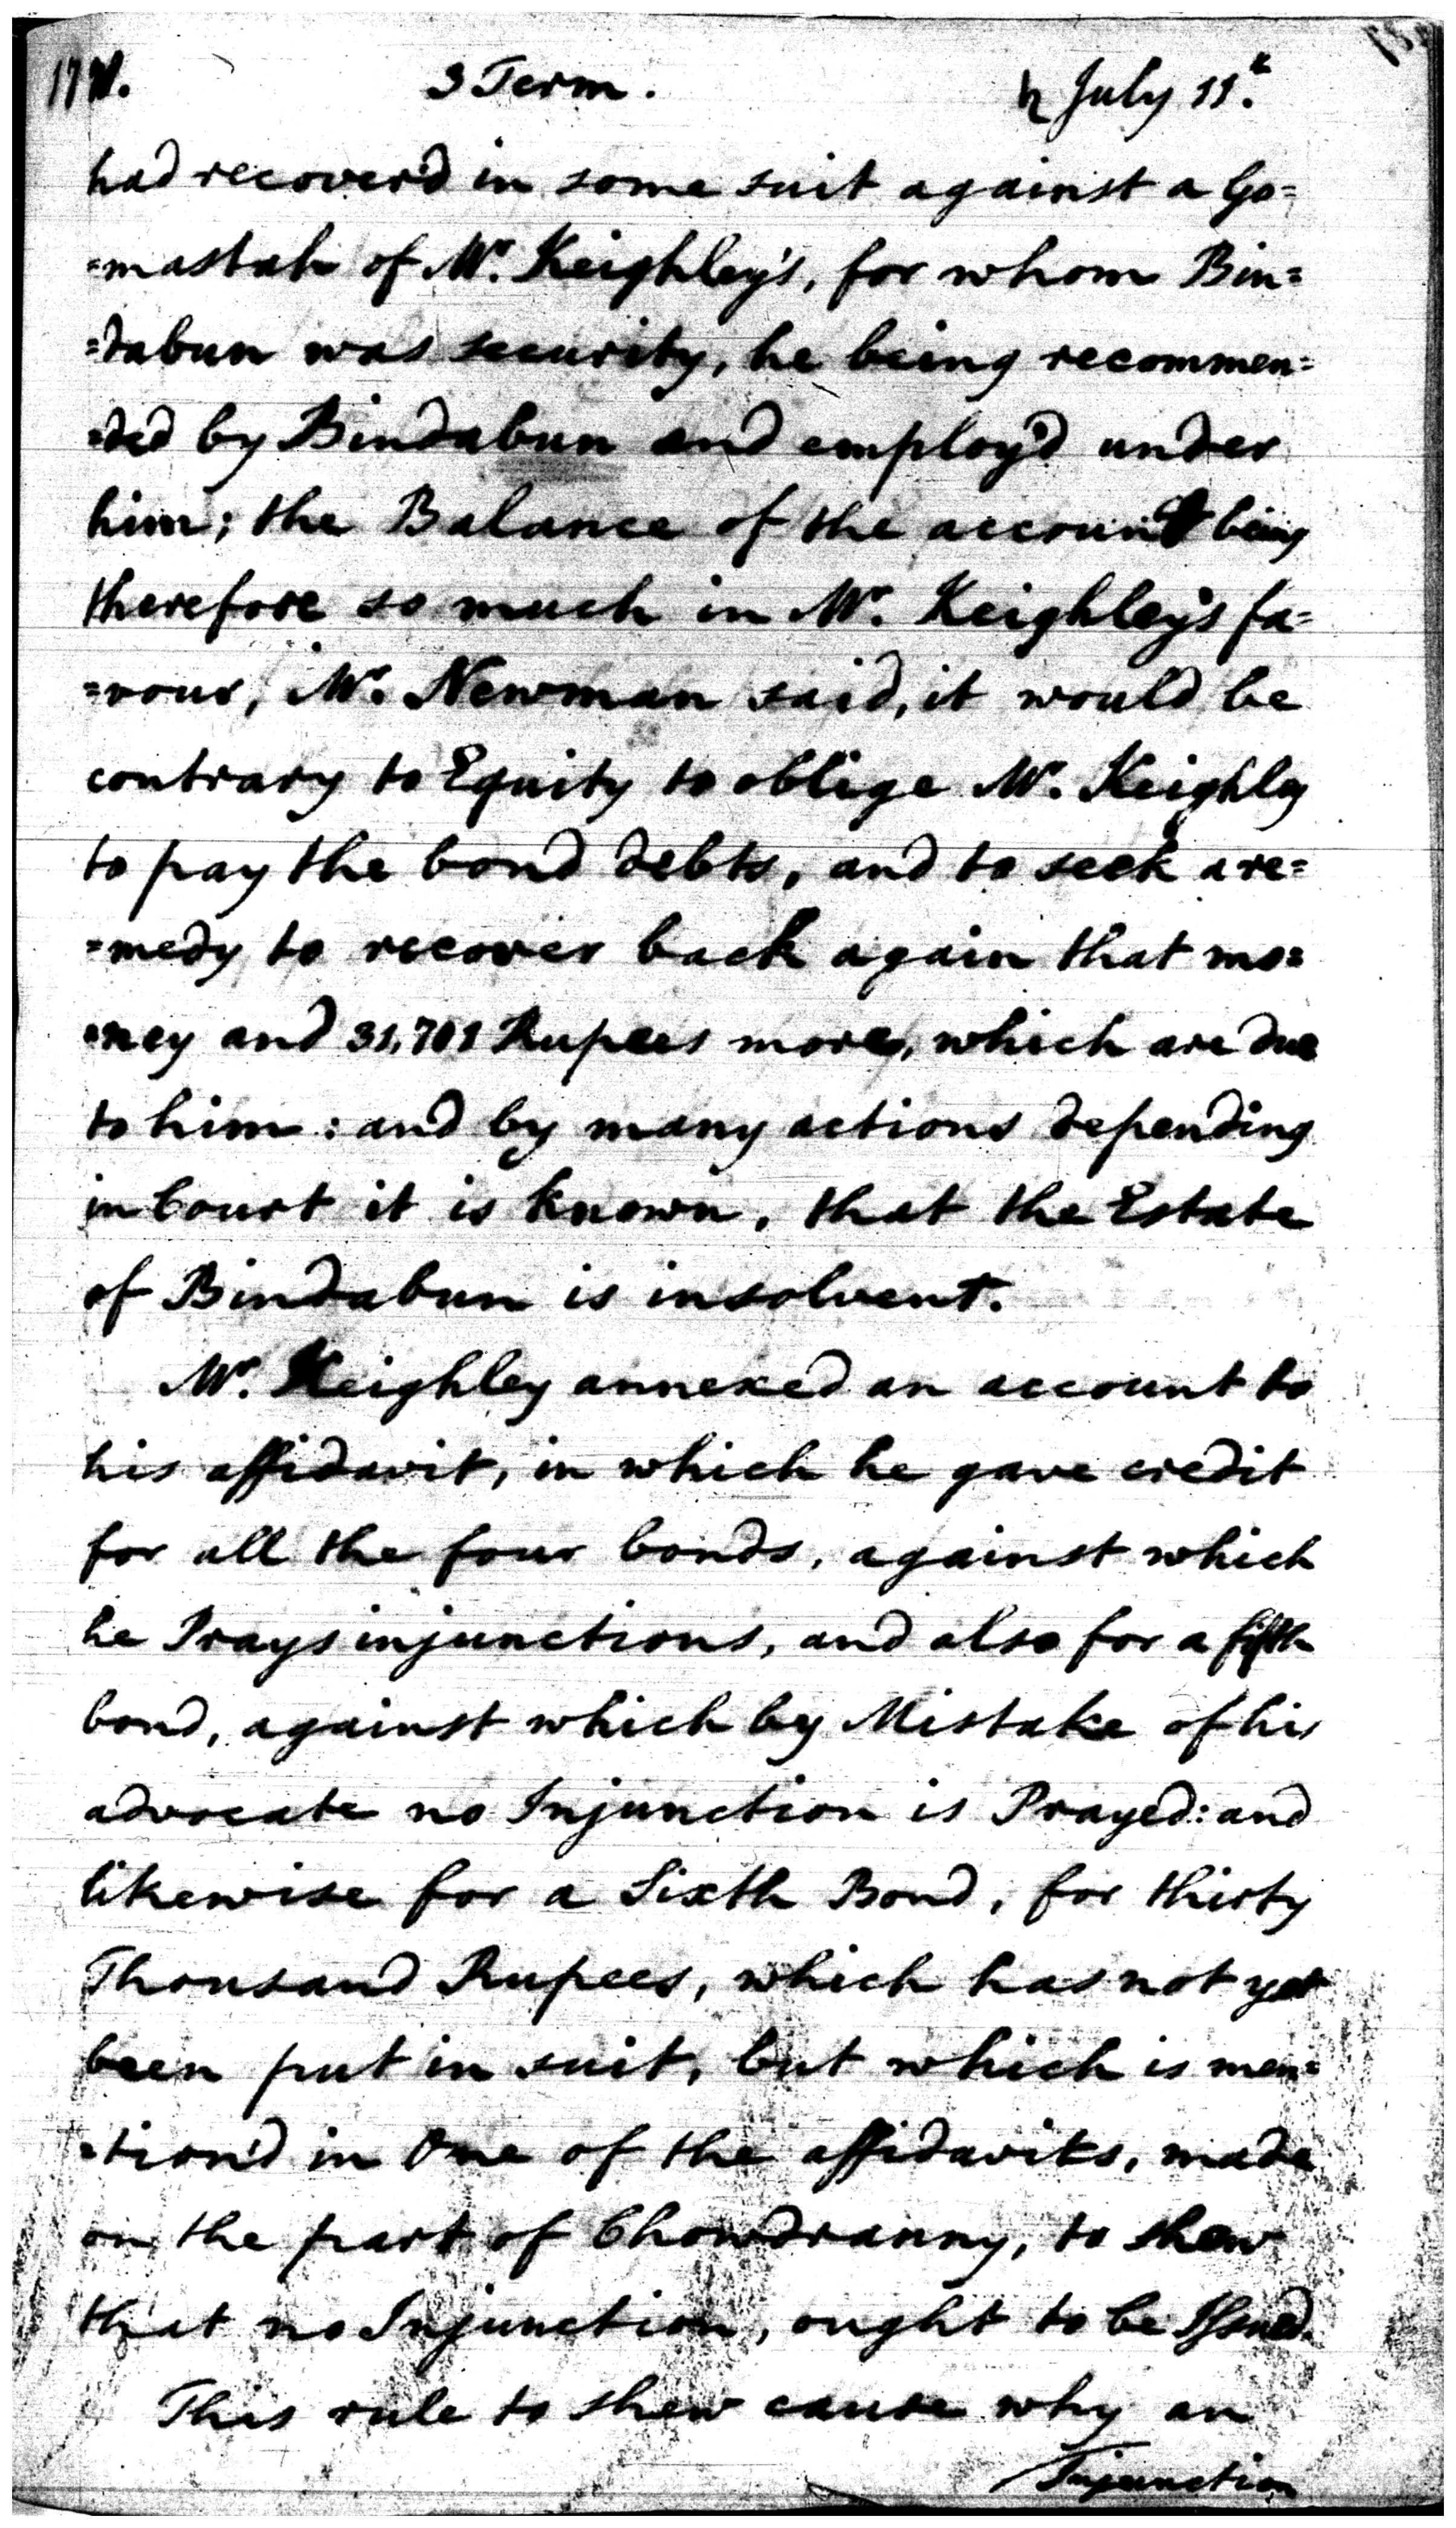 3 Term. ♄ July 11.t
had recover'd in some suit against a Go=
=mastah of Mr. Keighley's, for whom Bin=
=dabun was security, he being recommen=
=ded by Bindabun and employ'd under
him; the Balance of the account being
therefore so much in Mr. Keighley's fa=
=vour, Mr. Newman said, it would be
contrary to Equity to oblige Mr. Keighley
to pay the bond debts, and to seek a re=
=medy to recover back again that mo=
=ney and 31,701 Rupees more, which are due
to him: and by many actions depending
in Court it is known, that the Estate
of Bindabun is insolvent.
Mr. Keighley annexed an account to
his affidavit, in which he gave credit
for all the four bonds, against which
he Prays injunctions, and also for a fifth
bond, against which by Mistake of his
advocate no Injunction is Prayed: and
likewise for a Sixth Bond, for thirty
Thousand Rupees, which has not yet
been put in suit, but which is men=
=tion'd in One of the affidavits, made
on the part of Chowdranny, to shew
that no Injunction, ought to be Issued.
This rule to shew cause why an
Injunction